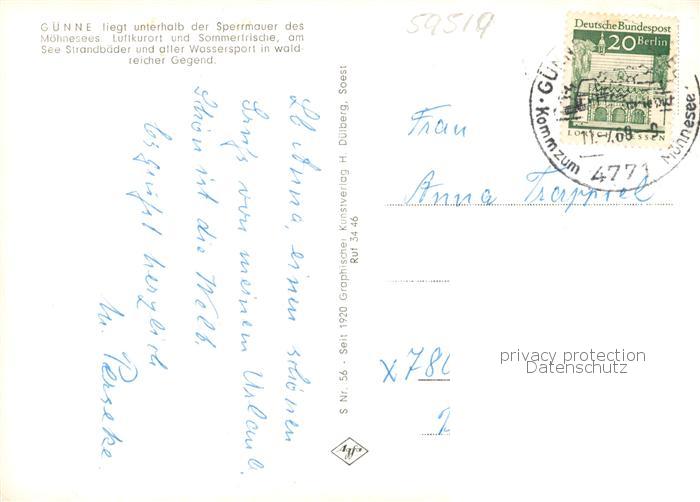 GÜNNE liegt unterhalb der Sperrmauer des
Möhnesees. Luftkurort und Sommerfrische, am
See Strandbäder und aller Wassersport in wald-
reicher Gegend.
59519
Deutsche Bundespost
20 Berlin
LORSCH HESSEN
GÜNNE
Komm zum Möhnesee
4771
Lb Anna, einen schönen
Gruß von meinem Urlaub.
Schön ist die Welt.
es grüßt herzlich
M.
S Nr. 56 - Seit 1920 Graphischer Kunstverlag H. Dülberg, Soest
Ruf 34 46
Agfa
Frau
Anna Trappiel
x 78
2
privacy protection
Datenschutz